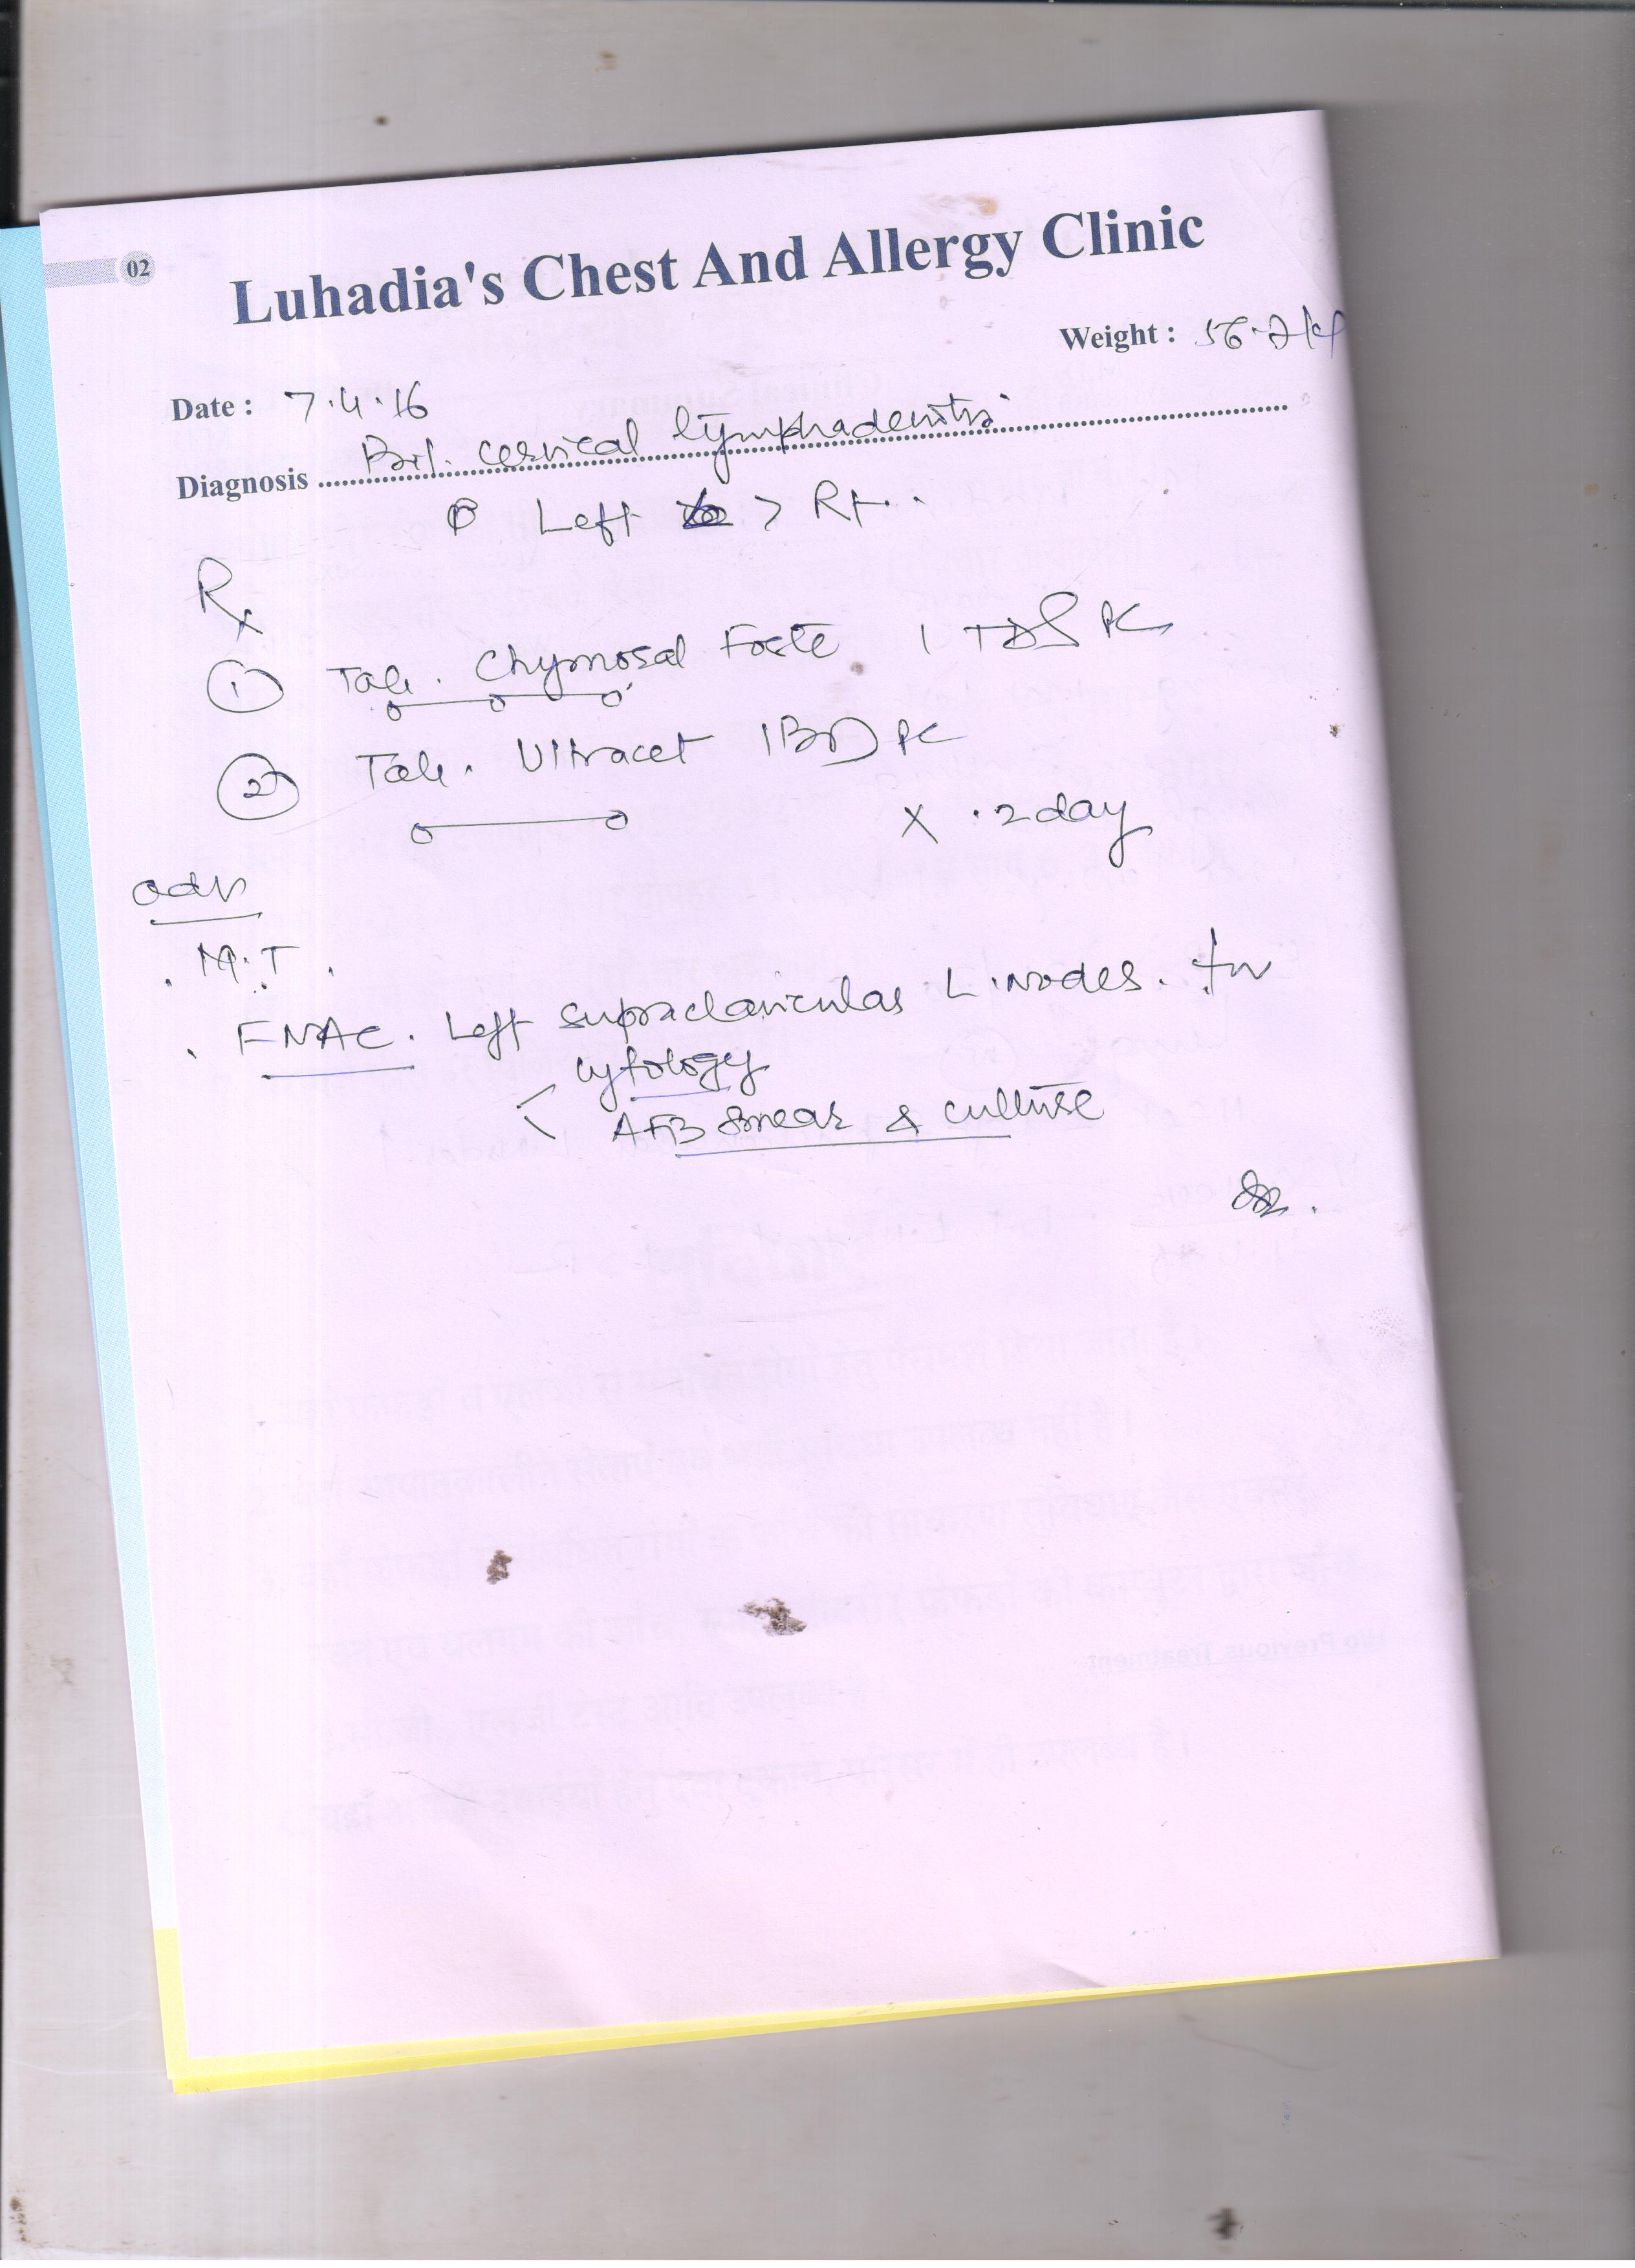 02
Luhadia's Chest And Allergy Clinic
Weight : 56.2 kg
Date : 7.4.16
Diagnosis Bil. cervical lymphadenitis
Left > Rt.
Rx
① Tab. Chymosal Forte 1 TDS PC
② Tab. Ultracet 1 BD PC
x 2 day
adv
. M.T.
. FNAC. Left supraclavicular L. nodes. for
cytology
< AFB smear & culture
H/o Previous Treatment